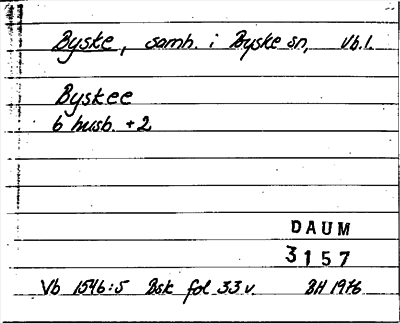 Byske, samh. i Byske sn, Vb.l.
Byskee
6 husb. +2
DAUM
3157
Vb 1546:5 Bsk fol 33 v. BH 1976